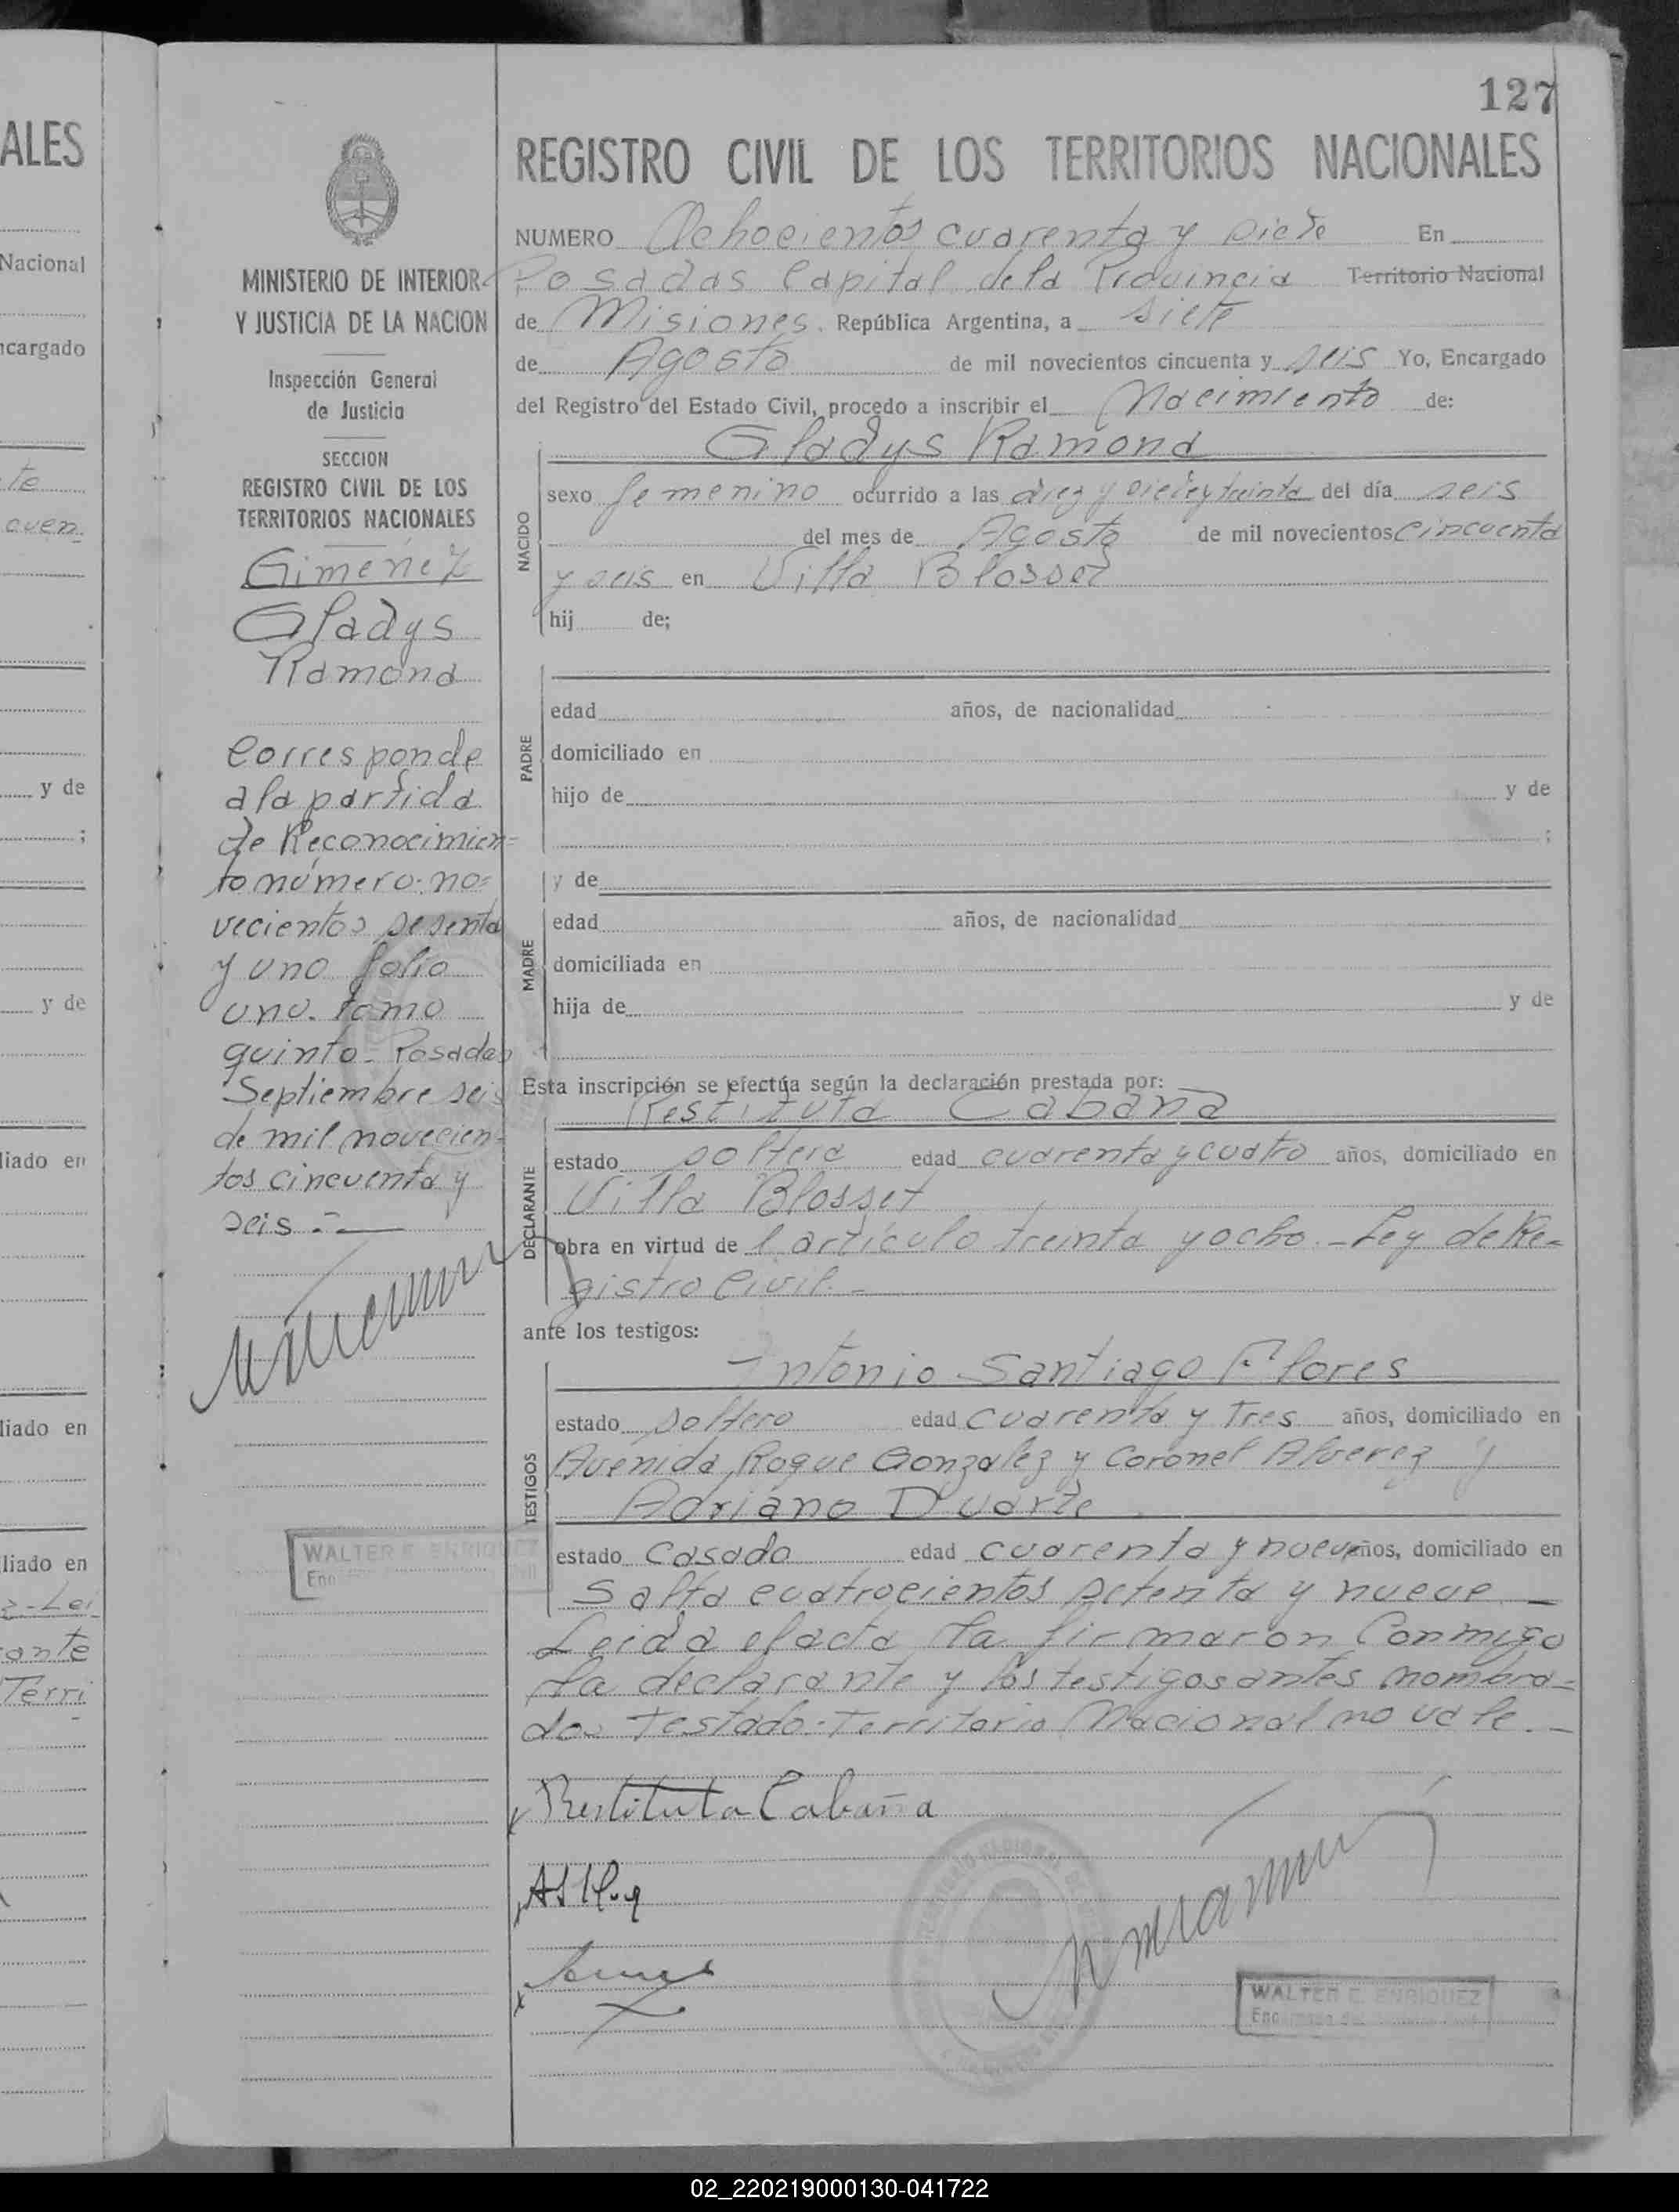 127
ALES
Nacional
ncargado
te
cuen
y de
;
y de
liado en
liado en
liado en
ante
Terri
MINISTERIO DE INTERIOR
Y JUSTICIA DE LA NACION
Inspección General
de Justicia
SECCION
REGISTRO CIVIL DE LOS
TERRITORIOS NACIONALES
Gimenez
Gladys
Ramona
Corresponde
a la partida
de Reconocimien=
to número no=
vecientos sesenta
y uno folio
uno. tomo
quinto. Posadas
Septiembre seis
de mil novecien-
tos cincuenta y
seis.-
WALTER E. ENRIQUEZ
REGISTRO CIVIL DE LOS TERRITORIOS NACIONALES
NUMERO Ochocientos cuarenta y siete En
Posadas Capital de la Provincia Territorio Nacional
de Misiones. República Argentina, a siete
de Agosto de mil novecientos cincuenta y seis Yo, Encargado
del Registro del Estado Civil, procedo a inscribir el Nacimiento de:
Gladys Ramona
NACIDO
sexo femenino ocurrido a las diez y siete y treinta del día seis
del mes de Agosto de mil novecientos cincuenta
y seis en Villa Blosset
hij de;
PADRE
edad años, de nacionalidad
domiciliado en
hijo de y de
;
y de
MADRE
edad años, de nacionalidad
domiciliada en
hija de y de
Esta inscripción se efectúa según la declaración prestada por:
Restituta Cabaña
DECLARANTE
estado soltera edad cuarenta y cuatro años, domiciliado en
Villa Blosset
obra en virtud de l artículo treinta y ocho.-Ley de Re=
gistro Civil.-
ante los testigos:
Antonio Santiago Flores
TESTIGOS
estado soltero edad cuarenta y Tres años, domiciliado en
Avenida Roque Gonzalez y Coronel Alverez y
Adriano Duarte
estado Casado edad cuarenta y nueve años, domiciliado en
Salta cuatrocientos setenta y nueve.-
Leida el acta la firmaron Conmigo
la declarante y los testigos antes nombra=
dos Testado-Territorio Nacional no vale.-
Restituta Cabaña
WALTER E. ENRIQUEZ
02_220219000130-041722